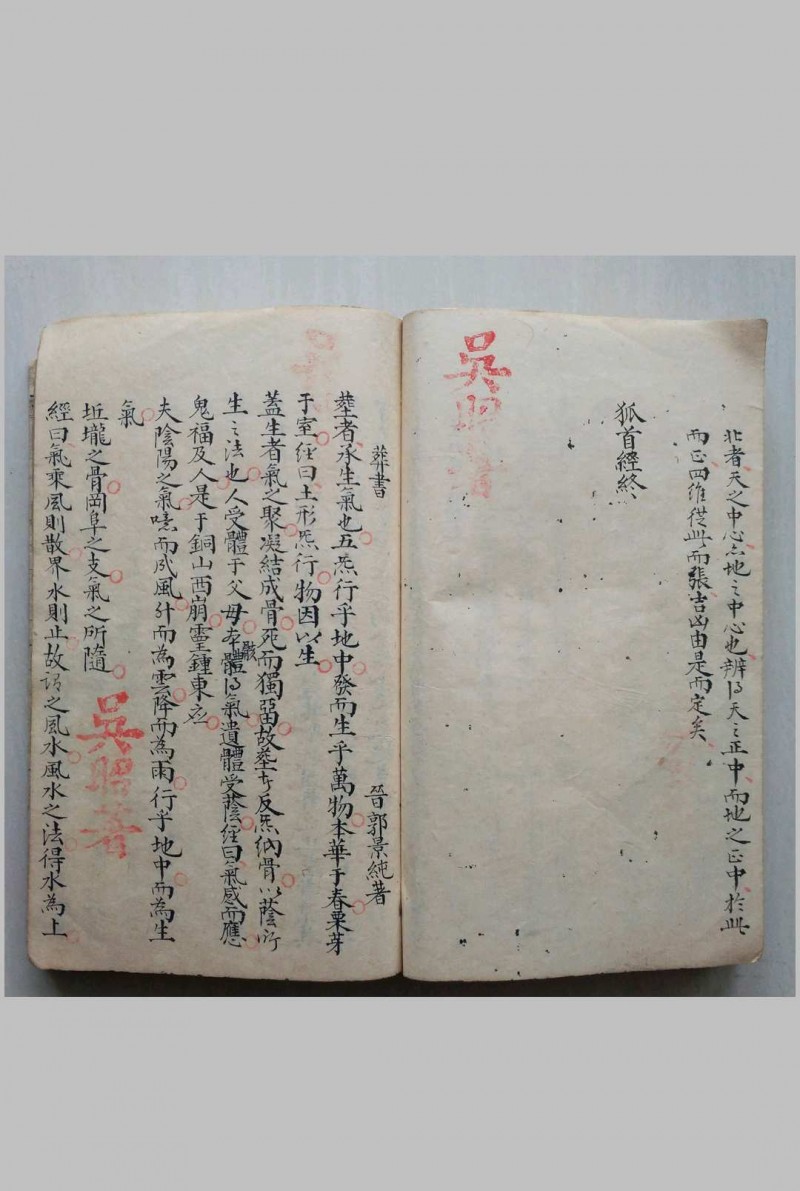 北者天之中心亦地之中心也辨得天之正中而地之正中於此
而正四維從此而張吉凶由是而定矣
狐首經終
吳昭著
葬書
晉郭景純著
塟者承生氣也五炁行乎地中發而生乎萬物本華于春栗芽
于室経曰土形炁行物因以生
蓋生者氣之聚凝結成骨死而獨畱故塟者反炁納骨以蔭所
生之法也人受體于父母本骸體得氣遺體受蔭経曰氣感而應
鬼福及人是于銅山西崩靈鍾東应
夫陰陽之氣噫而成風升而為雲降而為雨行乎地中而為生
氣
坵壠之骨岡阜之支氣之所隨
經曰氣乘風則散界水則止故謂之風水風水之法得水為上
吳昭著